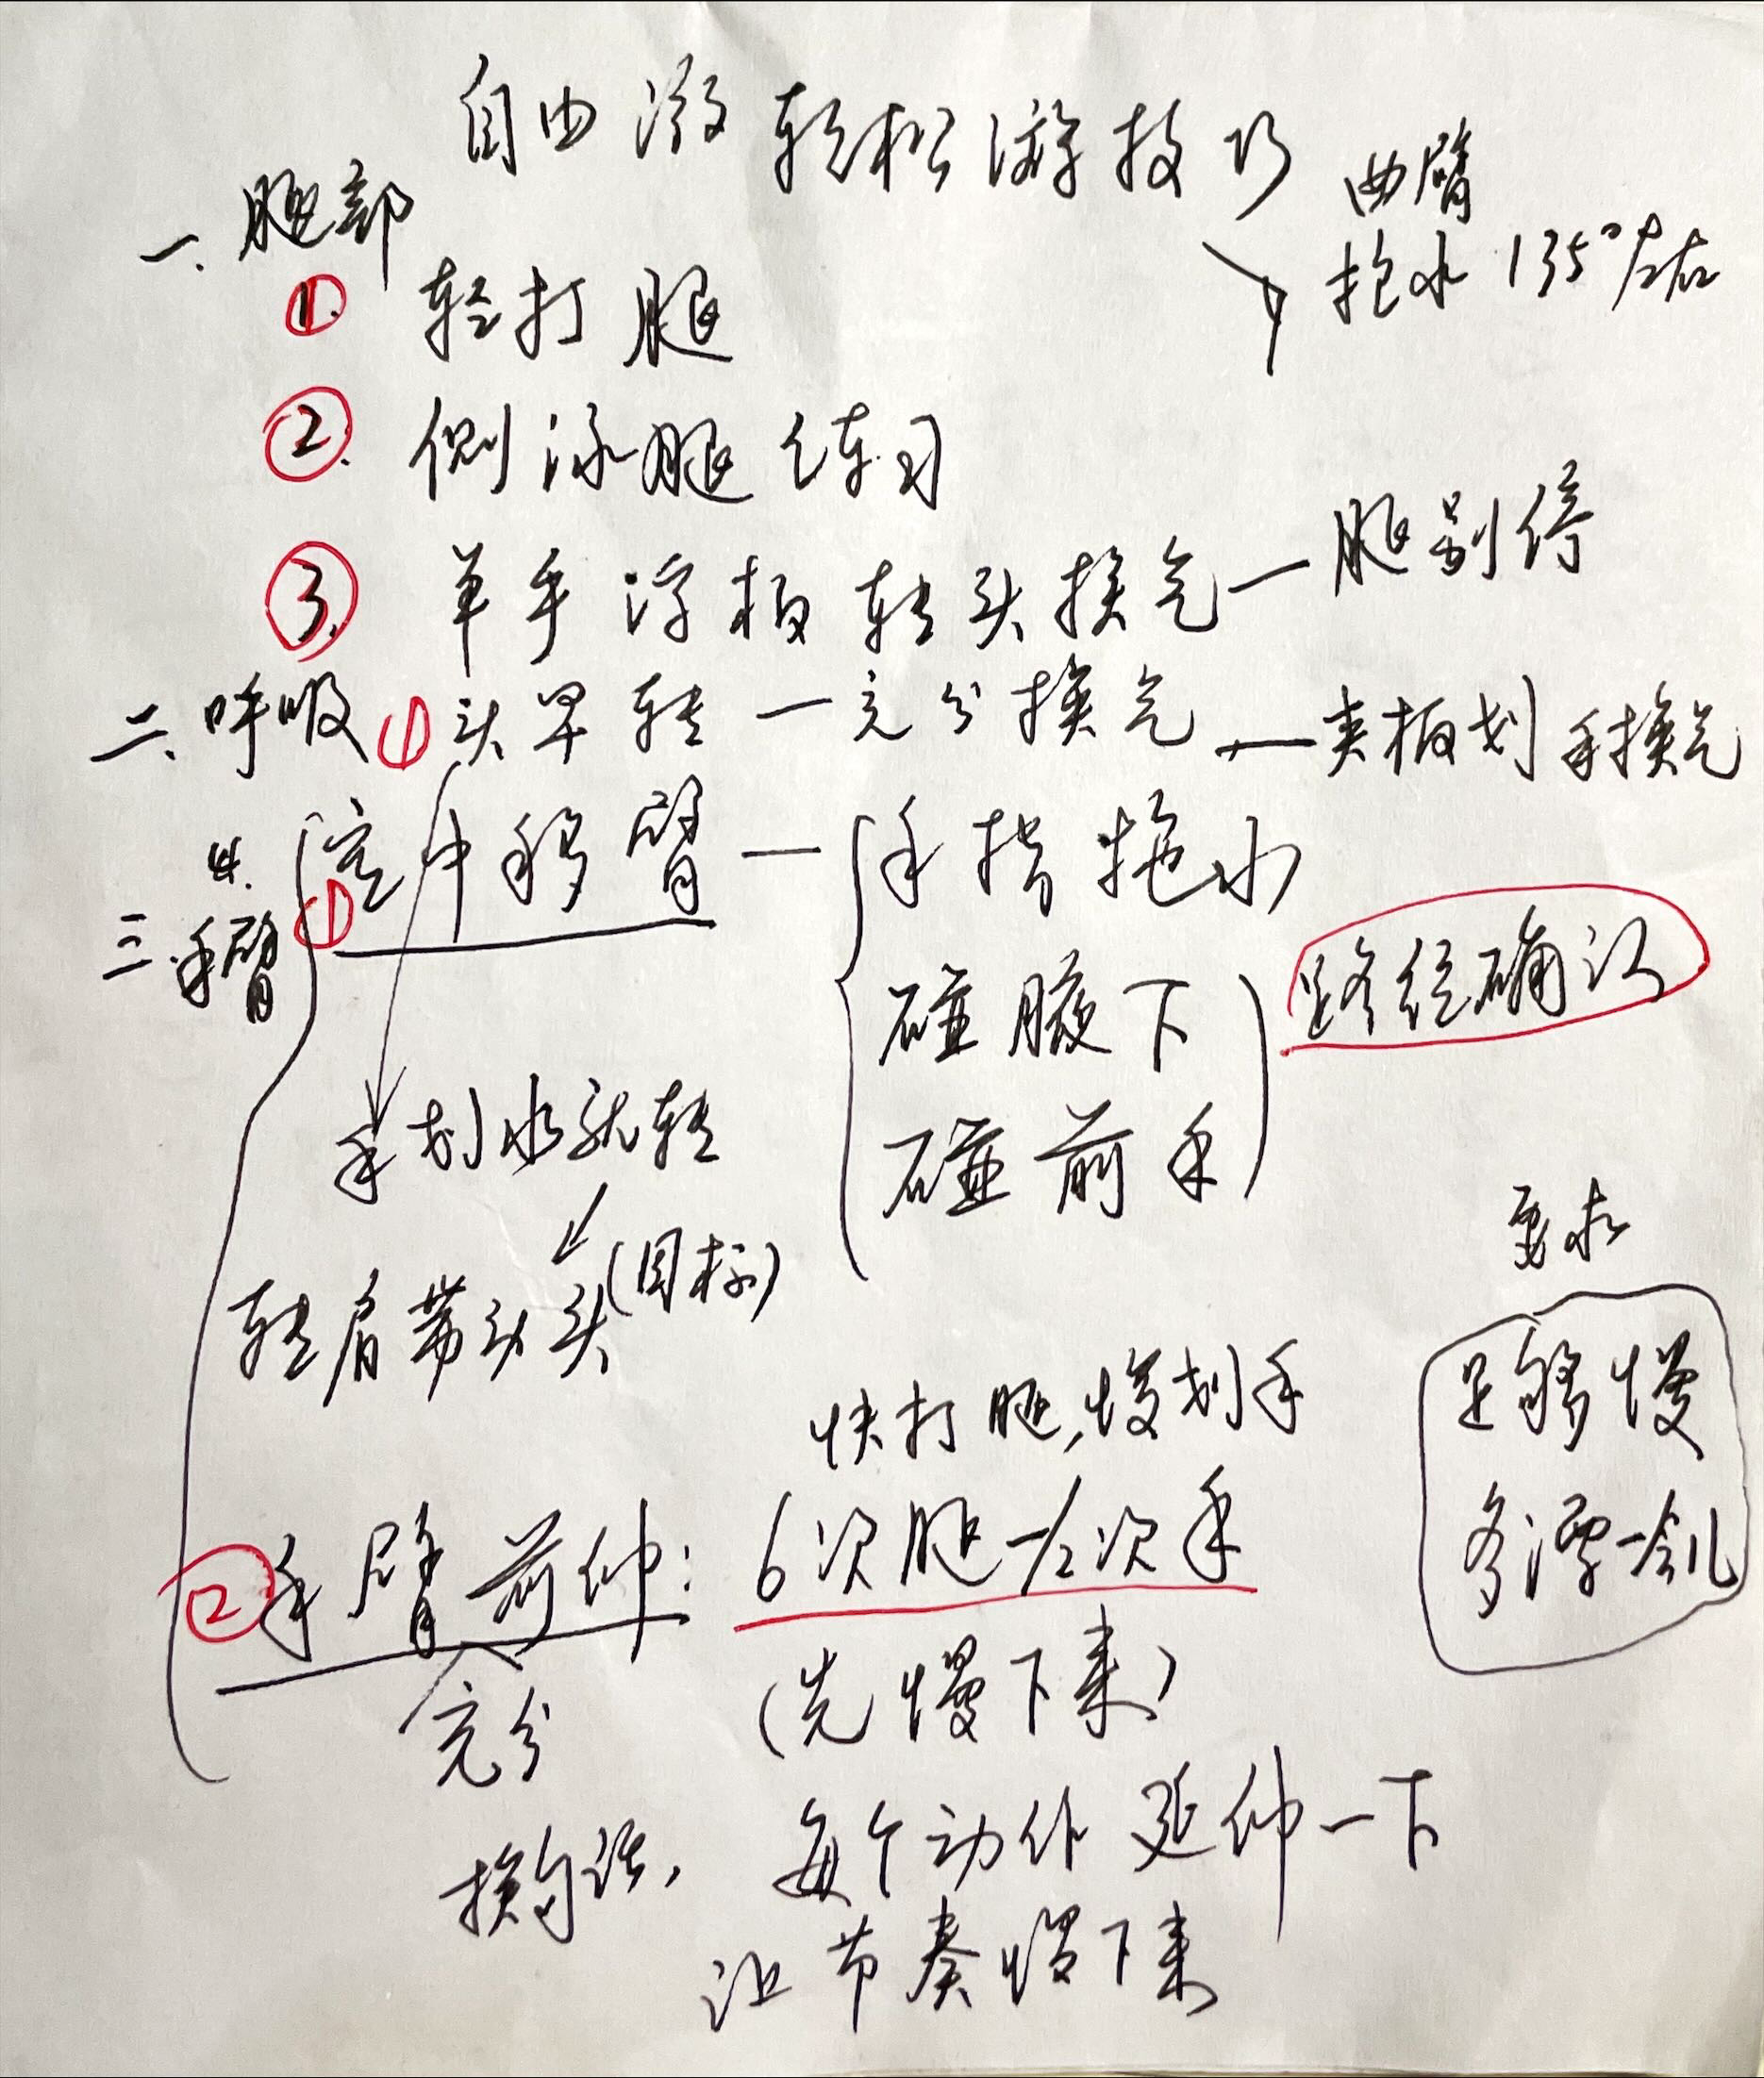 自由泳轻松游技巧
曲臂
抱水135°左右
一、腿部
①. 轻打腿
②. 侧泳腿练习
③. 单手浮板转头换气—腿别停
二、呼吸 ① 头早转—充分换气—夹板划手换气
4.
三.手臂
① 空中移臂—
手指拖水
碰腋下
碰前手
路径确认
手划水就转
(目标)
转肩带动头
要求
足够慢
多漂一会儿
快打腿,慢划手
② 手臂前伸: 6次腿—1/2次手
充分
(先慢下来)
换句话, 每个动作延伸一下
让节奏慢下来